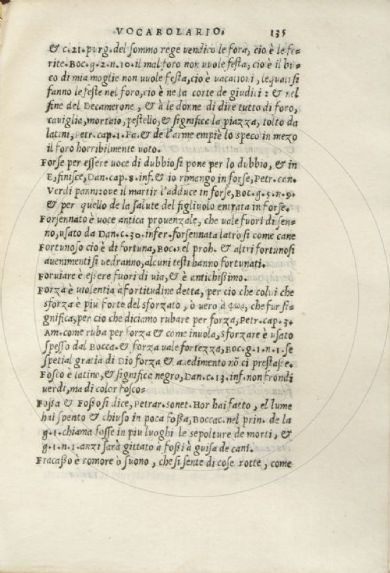 VOCABOLARIO. 135
& c.21. purg. del sommo rege vendico le fora, cio è le fe-
rite. Boc. g.2.n.10. il mal foro non vuole festa, cio è il bi-
co di mia moglie non vuole festa, cio è vacationi, lequali si
fanno le feste nel foro, cio è ne la corte de giudici : & nel
fine del Decamerone, & à le donne di dire tutto di foro,
caviglia, morteio, pestello, & significa la piazza, tolto da
latini, Petr. cap.1. Fa. & de l'arme empiè lo speco in mezo
il foro horribilmente voto.
Forse per essere voce di dubbio si pone per lo dubbio, & in
Esinisce, Dan. cap.8. inf. & io rimango in forse, Petr. can.
Verdi panni: ove il martir l'adduce in forse, Boc. g.3.n.9.
& per quello de la salute del figlivolo entrata in forse.
Forsennato è voce antica provenzale, che vale fuori di sen-
no, usato da Dan. c.30. infer. forsennata latrò si come cane
Fortunoso cio è di fortuna, Boc. nel proh. & altri fortunosi
avenimenti si vedranno, alcuni testi hanno fortunati.
Forviare è essere fuori di via, & è antichissimo.
Forza è violentia à fortitudine detta, per cio che colui che
sforza è piu forte del sforzato, o vero à che fur si-
gnifica, per cio che diciamo rubare per forza, Petr. cap.3.
Am. come ruba per forza & come invola, sforzare è usato
spesso dal Bocca. & forza vale fortezza, Boc. g.1.n.1. se
spetial gratia di Dio forza & avedimento nō ci prestasse.
Fosco è latino, & significa negro, Dan. c.13. inf. non frondi
verdi, ma di color fosco.
Fossa & Fosso si dice, Petrar. sonet. Hor hai fatto, el lume
hai spento & chiuso in poca fossa, Boccac. nel prin. de la
g.1. chiama fosse in piu luoghi le sepolture de morti, &
g.1.n.1. anzi sarà gittato a fossi à guisa de cani.
Fracasso è romore ò suono, che si sente di cose rotte, come